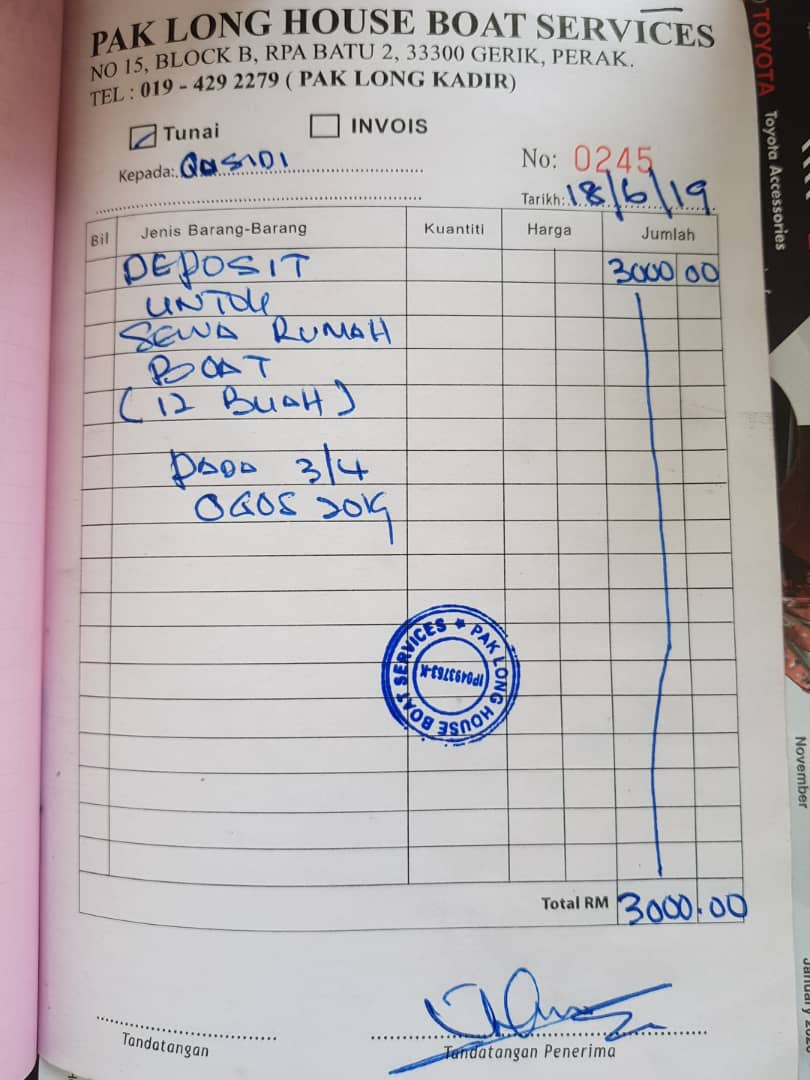 PAK LONG HOUSE BOAT SERVICES
NO 15, BLOCK B, RPA BATU 2, 33300 GERIK, PERAK.
TEL : 019 - 429 2279 ( PAK LONG KADIR)
Tunai INVOIS
Kepada: QUSIDI
No: 0245
Tarikh: 18/6/19
Bil Jenis Barang-Barang Kuantiti Harga Jumlah
DEPOSIT 3000 00
UNTUK
SEWA RUMAH
BOAT
(12 BUAH)
PADA 3/4
OGOS 2019
PAK LONG HOUSE BOAT SERVICES ★
Total RM 3000.00
Tandatangan
Tandatangan Penerima
TOYOTA
Toyota Accessories
November
January 2020